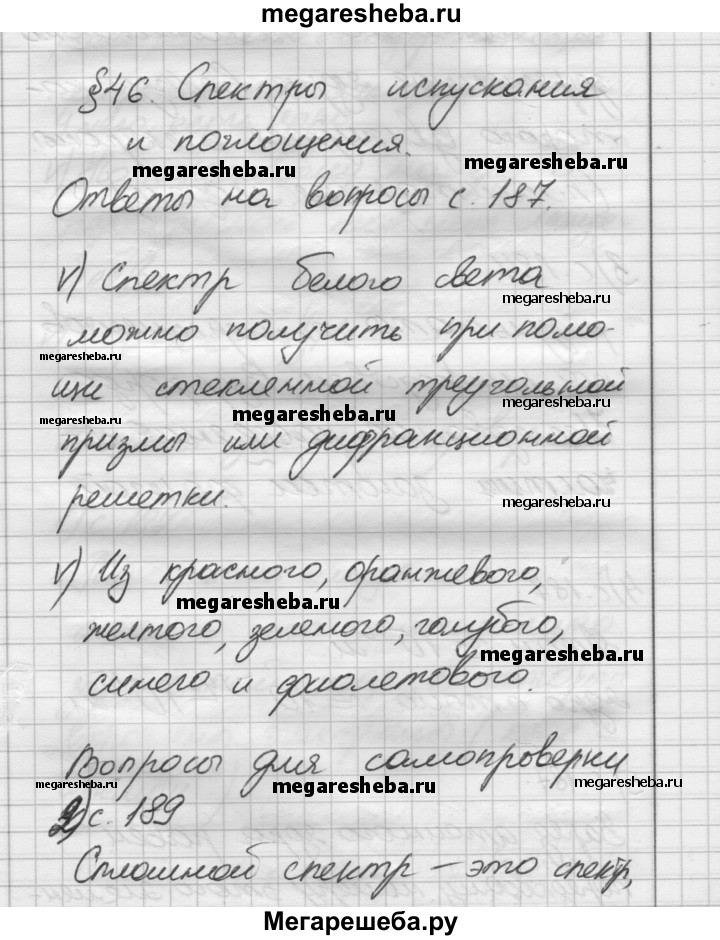 megaresheba.ru
§46. Спектры испускания
и поглощения.
megaresheba.ru
megaresheba.ru
Ответы на вопросы с. 187.
V) Спектр белого света
megaresheba.ru
можно получить при помо-
megaresheba.ru
щи стекленной треугольной
megaresheba.ru
megaresheba.ru
megaresheba.ru
призмы или дифракционной
решетки.
megaresheba.ru
V) Из красного, оранжевого,
megaresheba.ru
желтого, зеленого, голубого,
megaresheba.ru
синего и фиолетового.
Вопросы для самопроверки
megaresheba.ru
megaresheba.ru
megaresheba.ru
с. 189
Сплошной спектр – это спектр,
Мегарешеба.ру